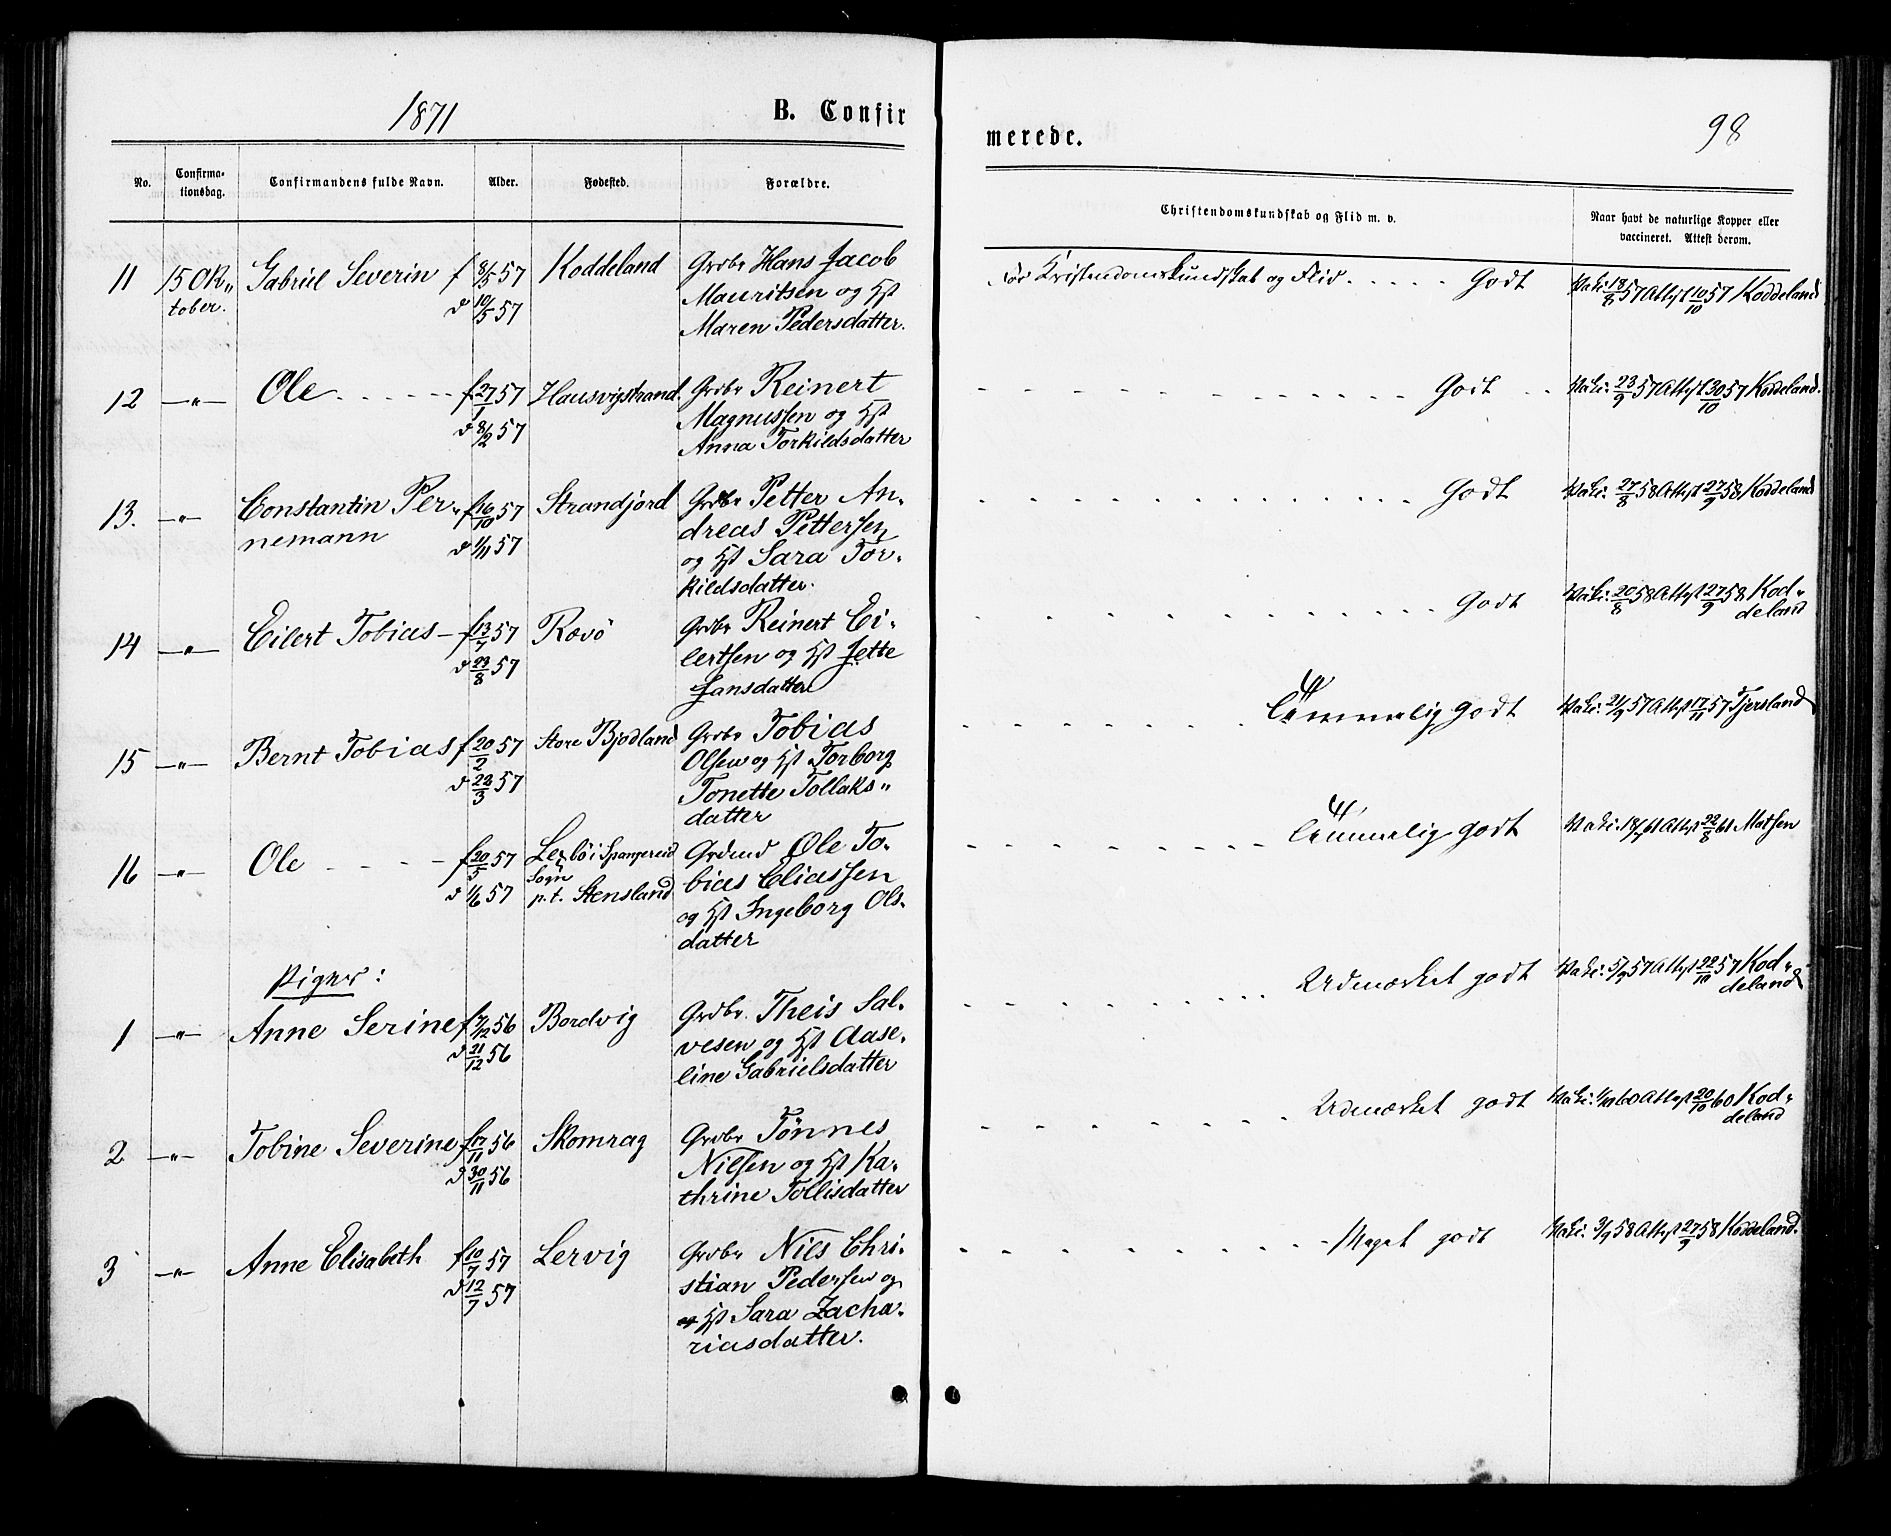 1871
B. Confir
merede.
98
No.
Confirma-
tionsdag.
Confirmandens fulde Navn.
Alder.
Fødested.
Forældre.
Christendomskundskab og Flid m. v.
Naar havt de naturlige Kopper eller
vaccineret. Attest derom.
11 15 Ok„ Gabriel Severin f 8/5 57 Koddeland Grdbr Hans Jacob
tober. d 10/5 57 Mauritsen og Hst
Maren Pedersdatter.
For Kristendomskundskab og Flid . . . . . Godt Vaki: 18/8 57 Attest 10/10 57 Koddeland
12 —„— Ole . . . . . . f 27/1 57 Hausvigstrand Grdbr Reinert
d 8/2 57 Magnussen og Hst
Anna Torkildsdatter
Godt Vaki: 23/9 57 Attest 30/10 57 Koddeland.
13. —„— Constantin Per„ f 16/10 57 Strandjord Grdbr Petter An-
nemann d 1/11 57 dreas Pettersen
og Hst Sara Tor-
kildsdatter.
Godt Vaki: 27/8 58 Attest 27/9 58 Koddeland
14 —„— Eilert Tobias — f 13/7 57 Rævö Grdbr Reinert Ei-
d 23/8 57 lertsen og Hst Jette
Jansdatter
Godt Vaki: 20/8 58 Attest 27/9 58 Kod„
deland
15 —„— Bernt Tobias f 20/2 57 Store Bjodland Grdbr Tobias
d 22/3 57 Olsen og Hst Torborg
Tonette Tollaks„
datter
godt Vaki: 21/9 57 Attest 17/11 57 Tjersland
16 —„— Ole . . . . f 20/5 57 i Spangereid Ole To-
Sogn
d 1/6 57 p.t. Stensland bias Eliassen
og Hst Ingeborg Ols-
datter
godt Vaki: 18/7 61 Attest 22/8 61 Matsen
Piger:
1 —„— Anne Serine f 7/12 56 Bordvig Grdbr. Theis Sal-
d 21/12 56 vesen og Hst Aase-
line Gabrielsdatter
Udmærket godt Vaki: 5/9 57 Attest 22/10 57 Kod„
deland
2 —„— Tobine Severine f 17/11 56 Skomrag Grdbr Tönnes
d 30/11 56 Nilsen og Hst Ka-
thrine Tollisdatter
Udmærket godt Vaki: 1/10 60 Attest 20/10 60 Kod„
deland
3 —„— Anne Elisabeth f 10/7 57 Lervig Grdbr Nils Chri-
d 12/7 57 stian Pedersen og
Hst Sara Zacha-
riasdatter.
Meget godt Vaki: 3/9 58 Attest 27/9 58 Koddeland.